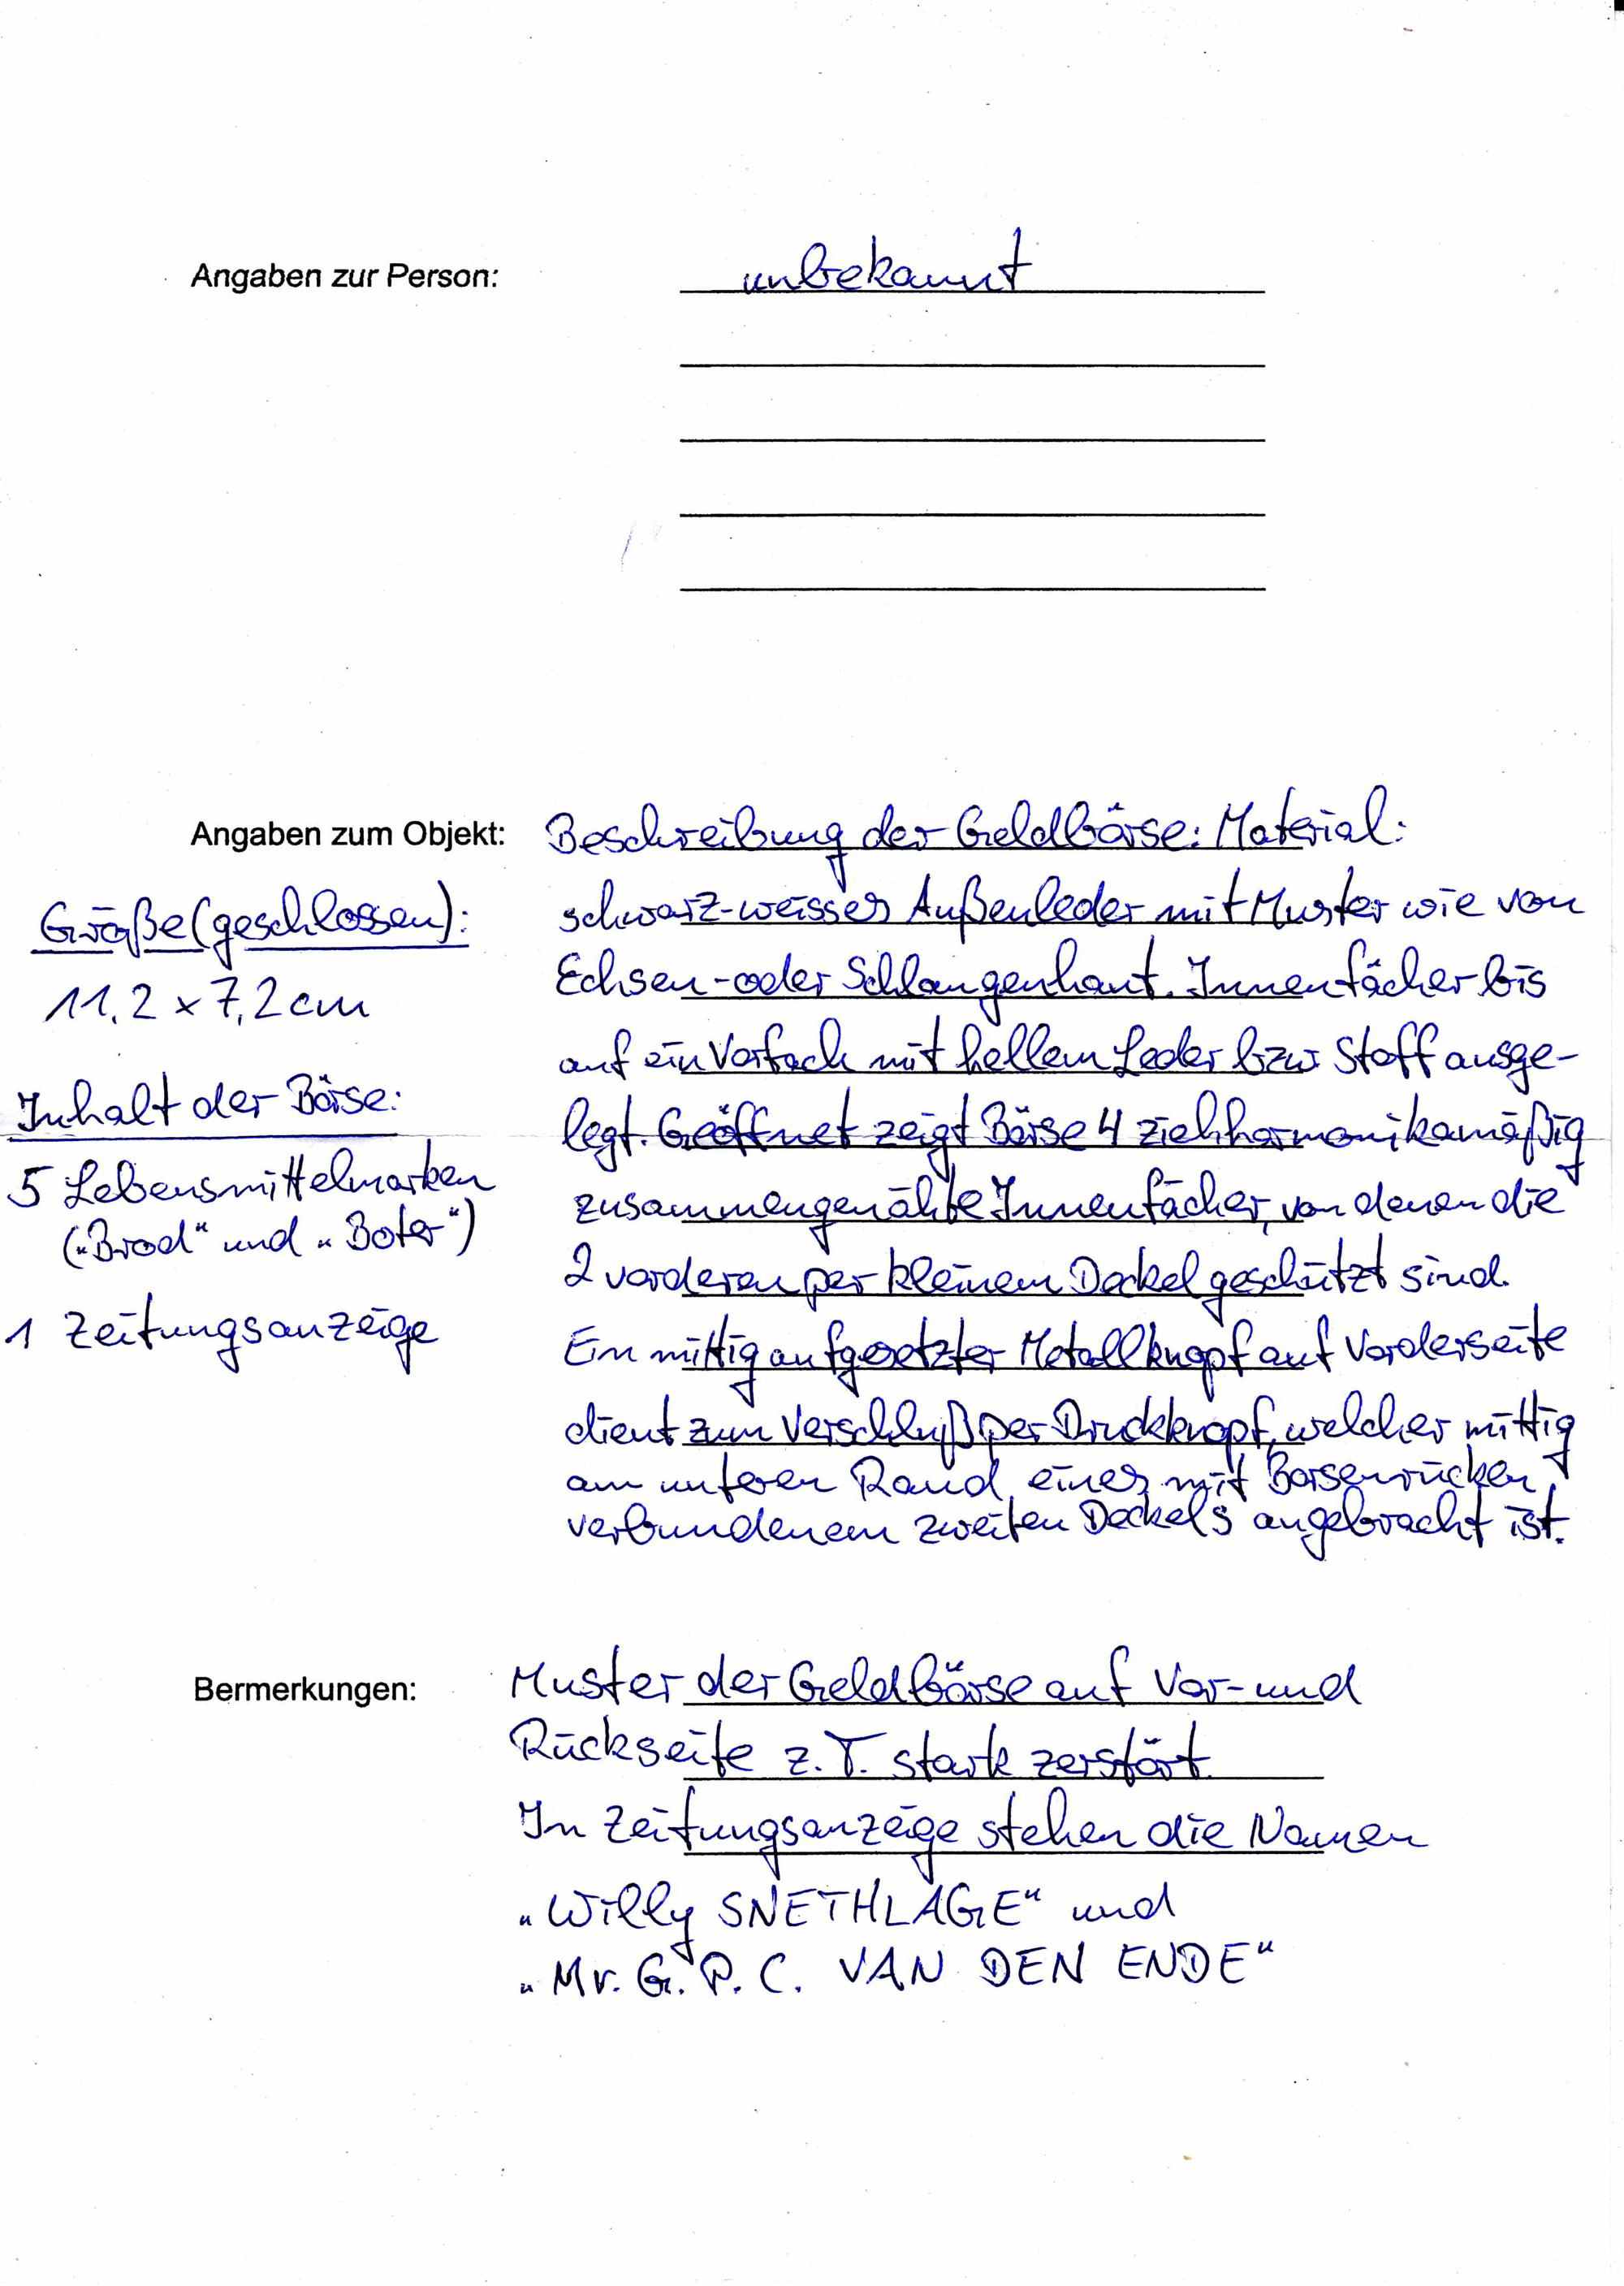 Angaben zur Person: unbekannt
Angaben zum Objekt: Beschreibung der Geldbörse: Material:
schwarz-weisses Außenleder mit Muster wie von
Echsen- oder Schlangenhaut. Innenfächer bis
auf ein Vorfach mit hellem Leder bzw Stoff ausge-
legt. Geöffnet zeigt Börse 4 ziehharmonikamäßig
zusammengenähte Innenfächer, von denen die
2 vorderen per kleinem Deckel geschützt sind.
Ein mittig aufgesetzter Metallknopf auf Vorderseite
dient zum Verschluß per Druckknopf, welcher mittig
am unteren Rand eines mit Börsenrücken
verbundenem zweiten Deckels angebracht ist.
Größe (geschlossen):
11,2 x 7,2 cm
Inhalt der Börse:
5 Lebensmittelmarken
(„Brod“ und „Boter“)
1 Zeitungsanzeige
Bermerkungen: Muster der Geldbörse auf Vor- und
Rückseite z.T. stark zerstört.
In Zeitungsanzeige stehen die Namen
„Willy SNETHLAGE“ und
„Mr. G. P. C. VAN DEN ENDE“